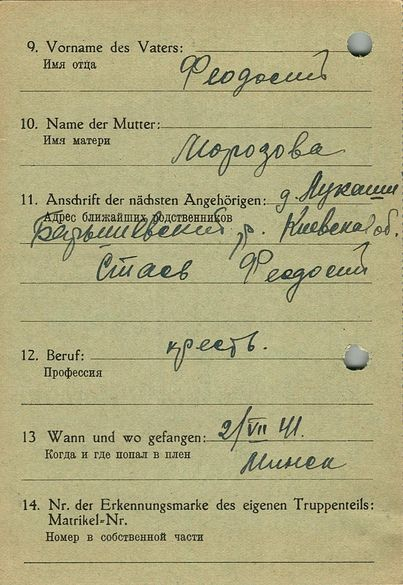 9. Vorname des Vaters:
Имя отца
Феодосий
10. Name der Mutter:
Имя матери
Морозова
11. Anschrift der nächsten Angehörigen: д. Лукаши
Адрес ближайших родственников
Барышевский р. Киевская об.
Стаев Феодосий
12. Beruf: кресть.
Профессия
13 Wann und wo gefangen: 2/VII 41.
Когда и где попал в плен
Минск
14. Nr. der Erkennungsmarke des eigenen Truppenteils:
Matrikel-Nr.
Номер в собственной части